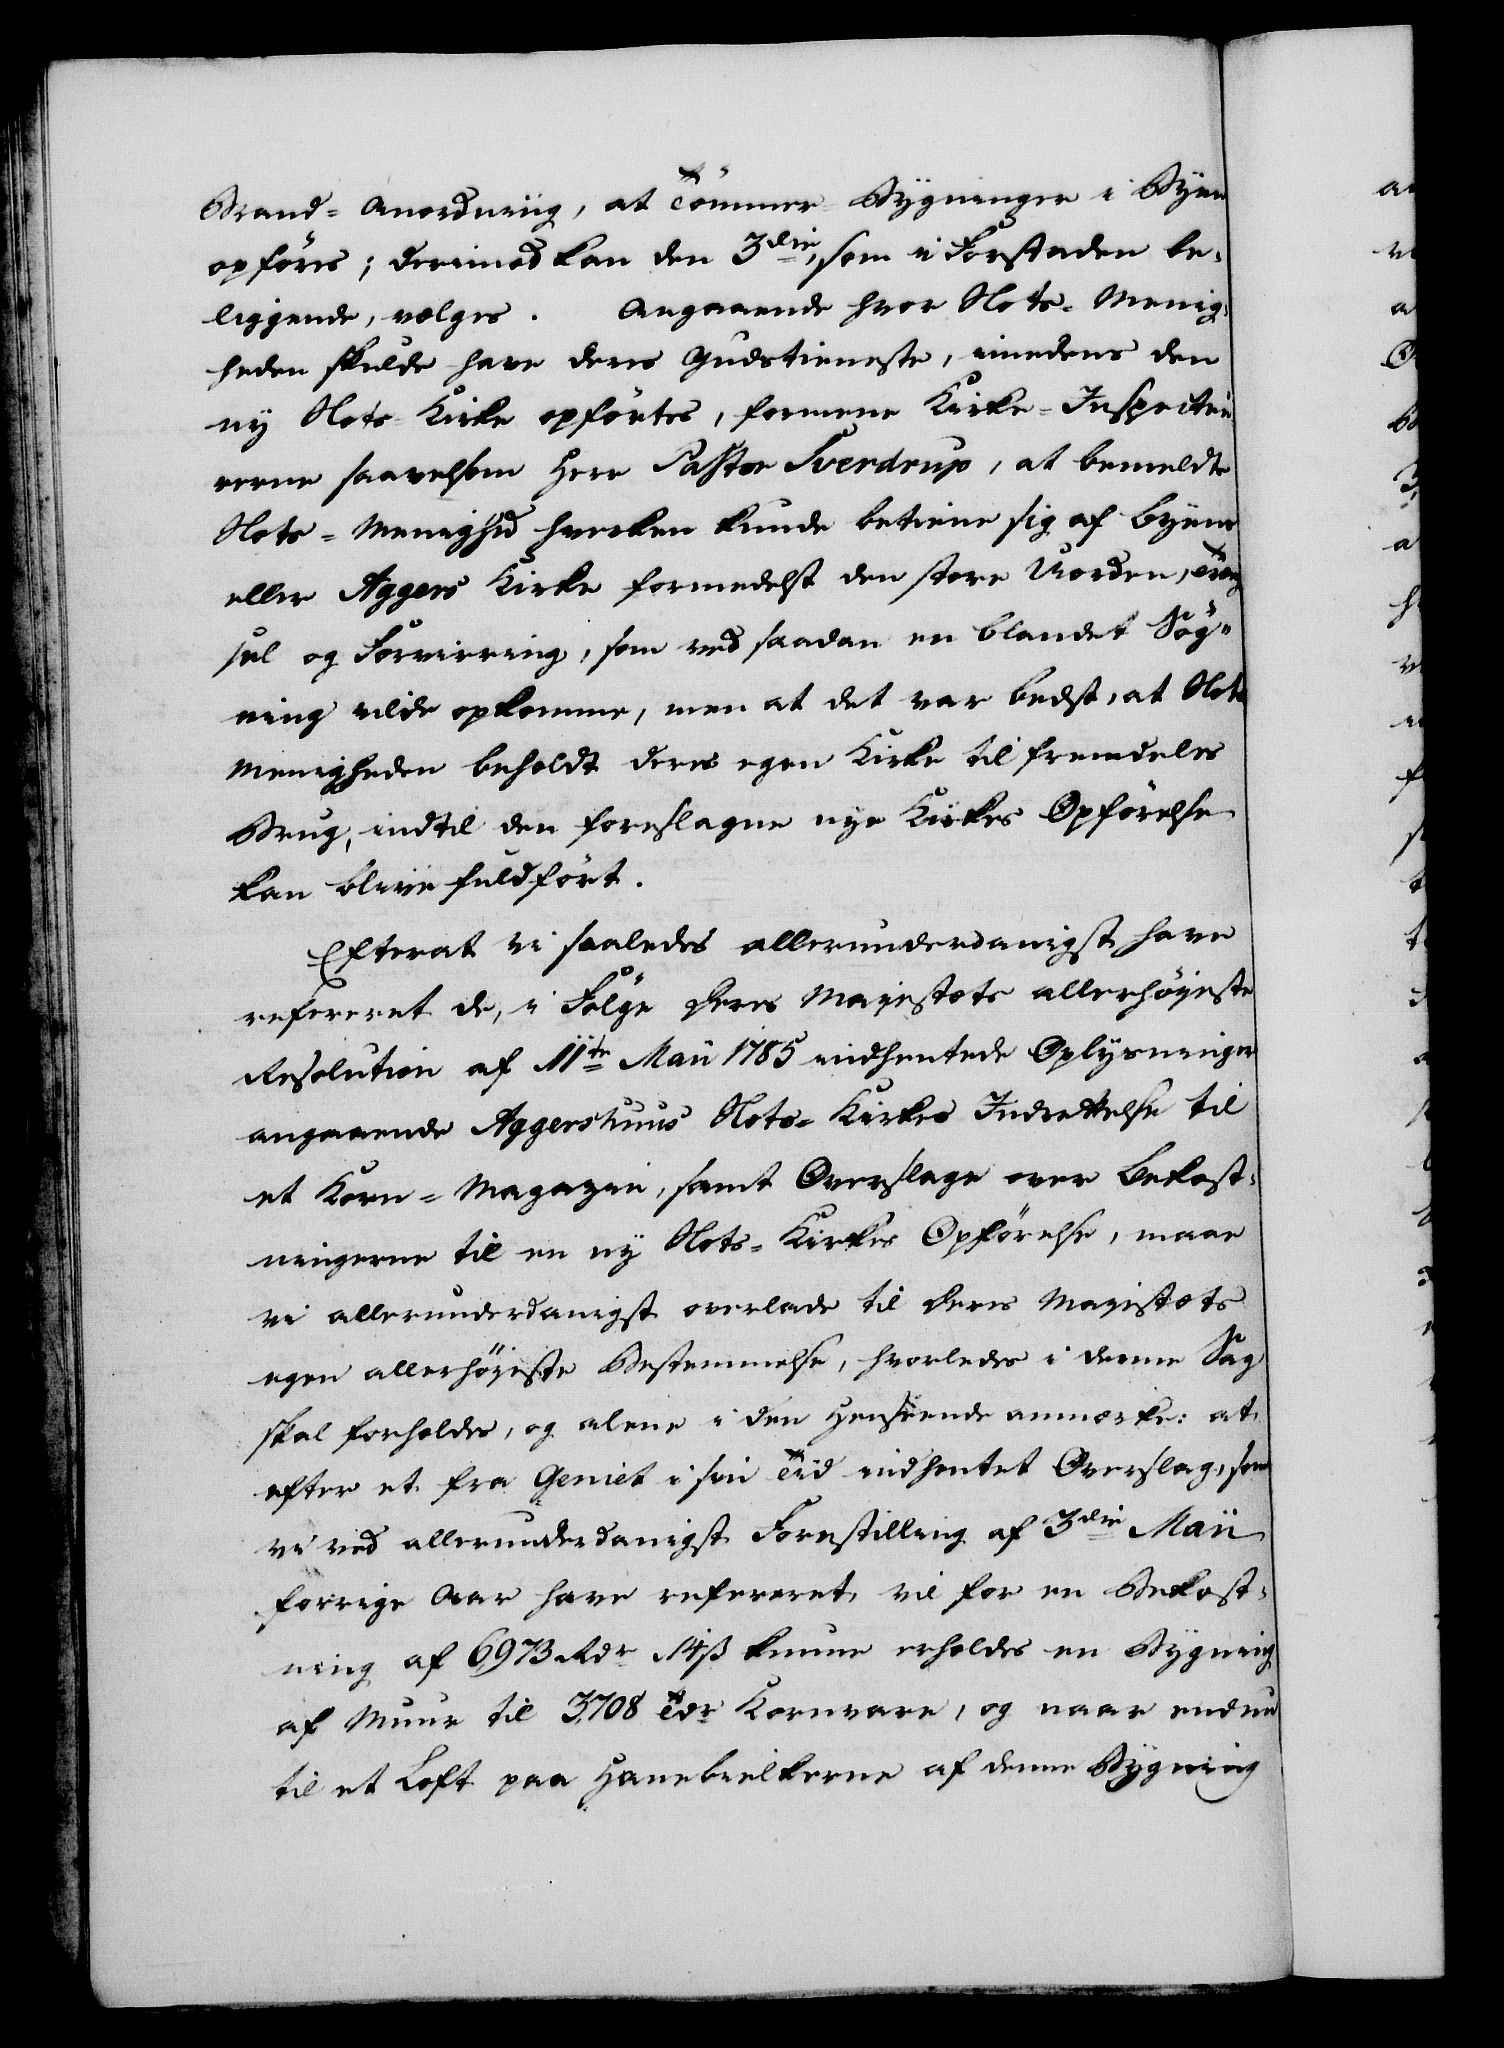 Brand-Anordning, at Tömmer-Bygninger i Byen
opföres; derimod kan den 3die, som i Forstaden be-
liggende, vælges. Angaaende hvor Slots-Menig-
heden skulde have deres Gudstieneste, imedens den
ny Slots-Kirke opförtes, formene Kirke-Inspecteu-
rerne saavelsom Herr Pastor Sverdrup, at bemeldte
Slots-Menighed hverken kunde betiene sig af Byens
eller Aggers Kirke formedelst den store Uorden, Træng-
sel og Forvirring, som ved saadan en blandet Sög-
ning vilde opkomme, men at det var bedst, at Slots
Menigheden beholdt deres egen Kirke til fremdeles
Brug, indtil den foreslagne nye Kirkes Opförelse
kan blive fuldfört.
Efterat vi saaledes allerunderdanigst have
refereret de, i Fölge Deres Majestæts allerhöyeste
Resolution af 11te Maii 1785 indhentede Oplysninger
angaaende Aggershuus Slots-Kirkes Indrettelse til
et Korn-Magazin, samt Overslage over Bekost-
ningerne til en ny Slots-Kirkes Opförelse, maae
vi allerunderdanigst overlade til Deres Majestæts
egen allerhöyeste Bestemmelse, hvorledes i denne Sag
skal forholdes, og alene i den Henseende anmærke: at
efter et fra Geniet i sin Tid indhentet Overslag, som
vi ved allerunderdanigst Forestilling af 3die Maii
forrige Aar have refereret, vil for en Bekost-
ning af 6973 Rdr 14 ß kunne erholdes en Bygning
af Muur til 3708 Tdr Kornvare, og naar endnu
til et Loft paa Hanebielkerne af denne Bygning